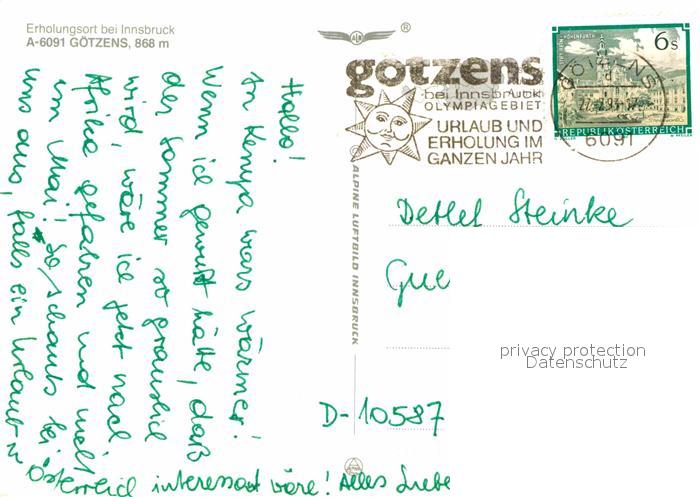 Erholungsort bei Innsbruck
A-6091 GÖTZENS, 868 m
Hallo!
In Kenya wars wärmer!
Wenn ich gewußt hätte, daß
der Sommer so grauslich
wird, wäre ich jetzt nach
Afrika gefahren und nicht
im Mai! So schauts bei
uns aus, falls ein Urlaub in
Österreich interessant wäre! Alles Liebe
ALPINE LUFTBILD INNSBRUCK
®
götzens
bei Innsbruck
OLYMPIAGEBIET
URLAUB UND
ERHOLUNG IM
GANZEN JAHR
GÖTZENS
6091
6 s
REPUBLIK ÖSTERREICH
Detlef Steinke
Gue
privacy protection
Datenschutz
D-10587